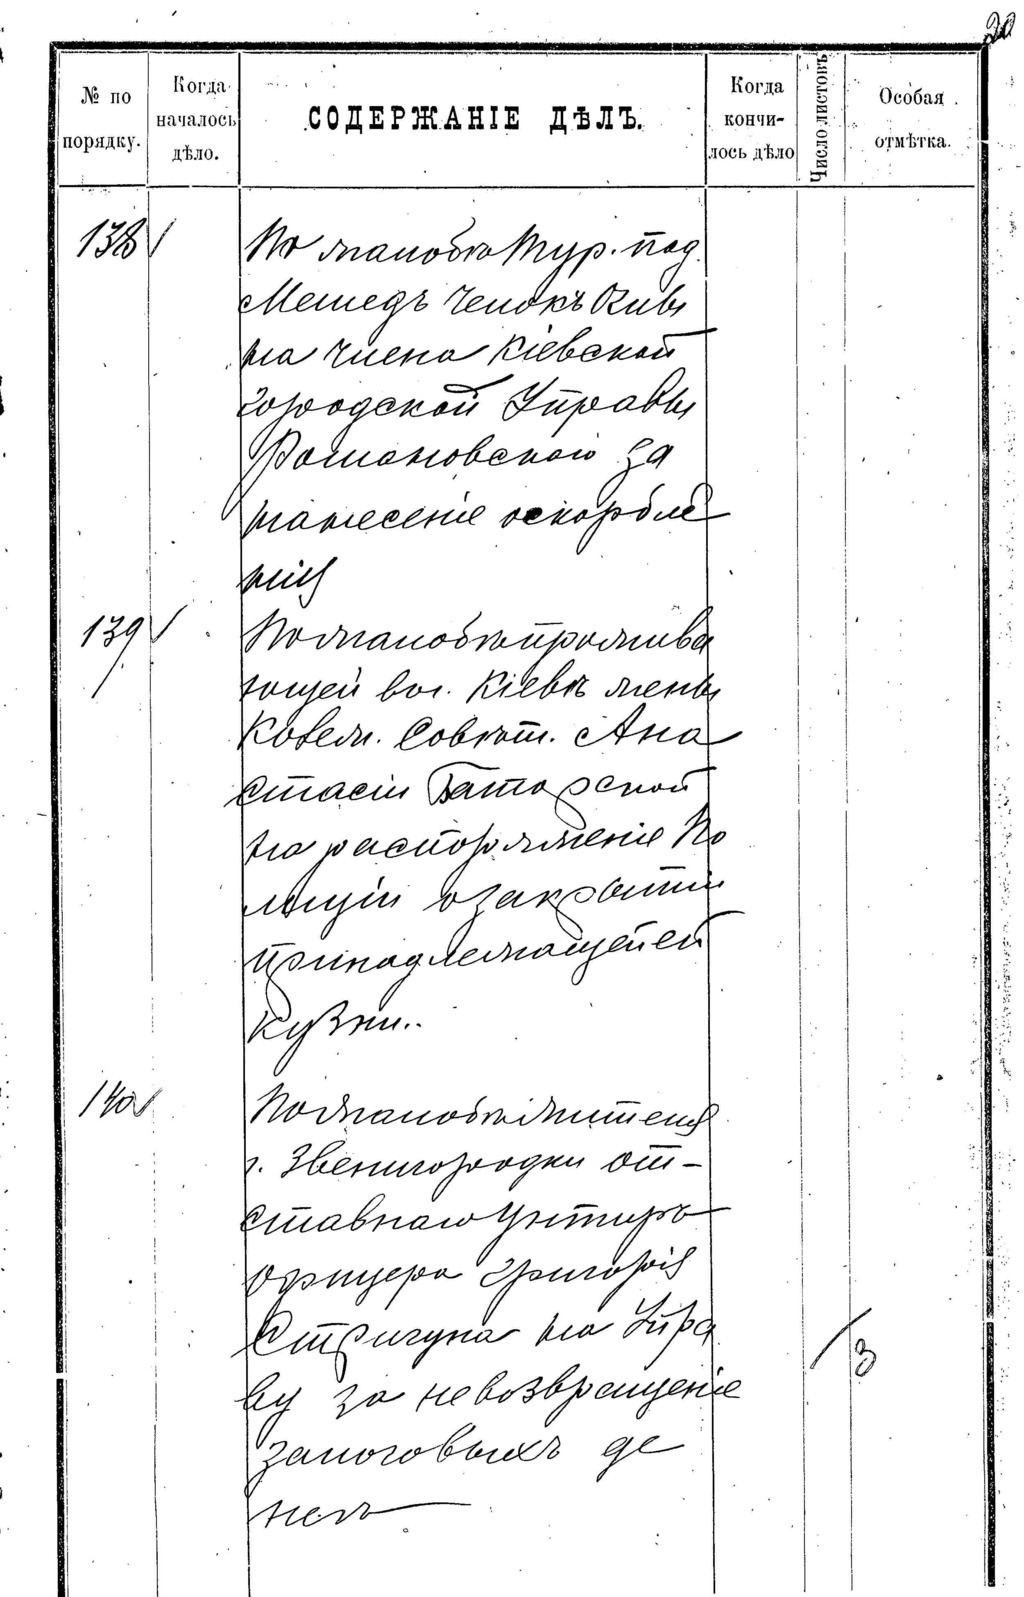 20
№ по порядку.
Когда началось дѣло.
СОДЕРЖАНІЕ ДѢЛЪ.
Когда кончилось дѣло
Число листовъ
Особая отмѣтка.
138
По жалобѣ Тур. под.
Мемедъ Челокъ
на члена Кіевской
городской Управы
Романовскаго за
нанесеніе оскорбле
нія
139
По жалобѣ прожива
ющей в г. Кіевѣ жены
Колеж. Совѣт. Ана
стасіи Баторской
на распоряженіе По
лиціи о закрытіи
принадлежащей ей
Кузни..
140
По жалобѣ жителя
г. Звенигородки от-
ставнаго Унтеръ
офицера Григорія
Стригуна на Упра
ву за невозвращеніе
залоговыхъ де
негъ
3